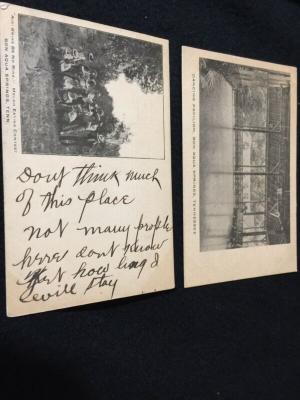 BON AQUA SPRINGS, TENN.
Dont think much
of this place
not many people
heres dont know
yet how long I
will stay
DANCING PAVILION, BON AQUA SPRINGS, TENNESSEE